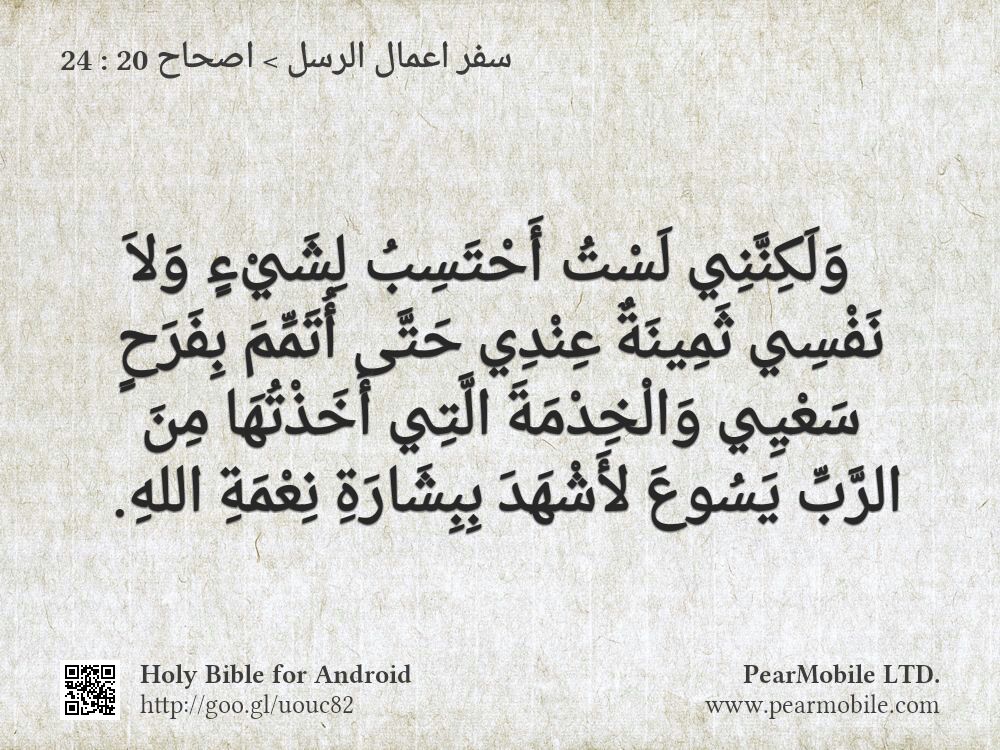 سفر اعمال الرسل > اصحاح 20 : 24
وَلَكِنَّنِي لَسْتُ أَحْتَسِبُ لِشَيْءٍ وَلاَ
نَفْسِي ثَمِينَةٌ عِنْدِي حَتَّى أُتَمِّمَ بِفَرَحٍ
سَعْيِي وَالْخِدْمَةَ الَّتِي أَخَذْتُهَا مِنَ
الرَّبِّ يَسُوعَ لأَشْهَدَ بِبِشَارَةِ نِعْمَةِ اللهِ.
Holy Bible for Android
http://goo.gl/uouc82
PearMobile LTD.
www.pearmobile.com